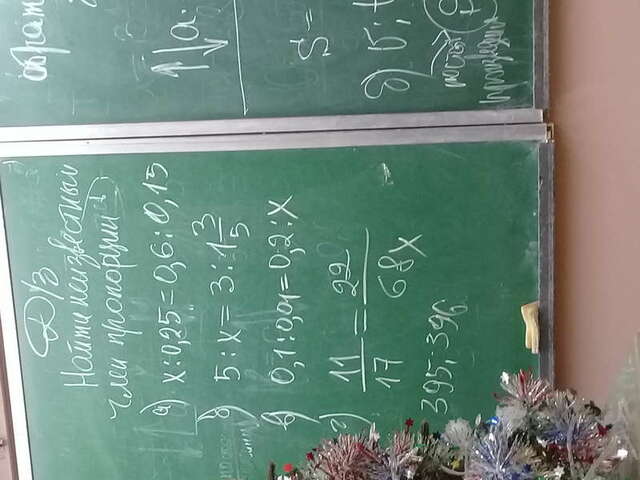 Д/З
Найти неизвестный
член пропорции
а) x : 0,25 = 0,6 : 0,15
б) 5 : x = 3 : 1 3/5
в) 0,1 : 0,01 = 0,2 : x
г) 11/17 = 22/68x
395; 396
обрат
a.
S =
б) v; t